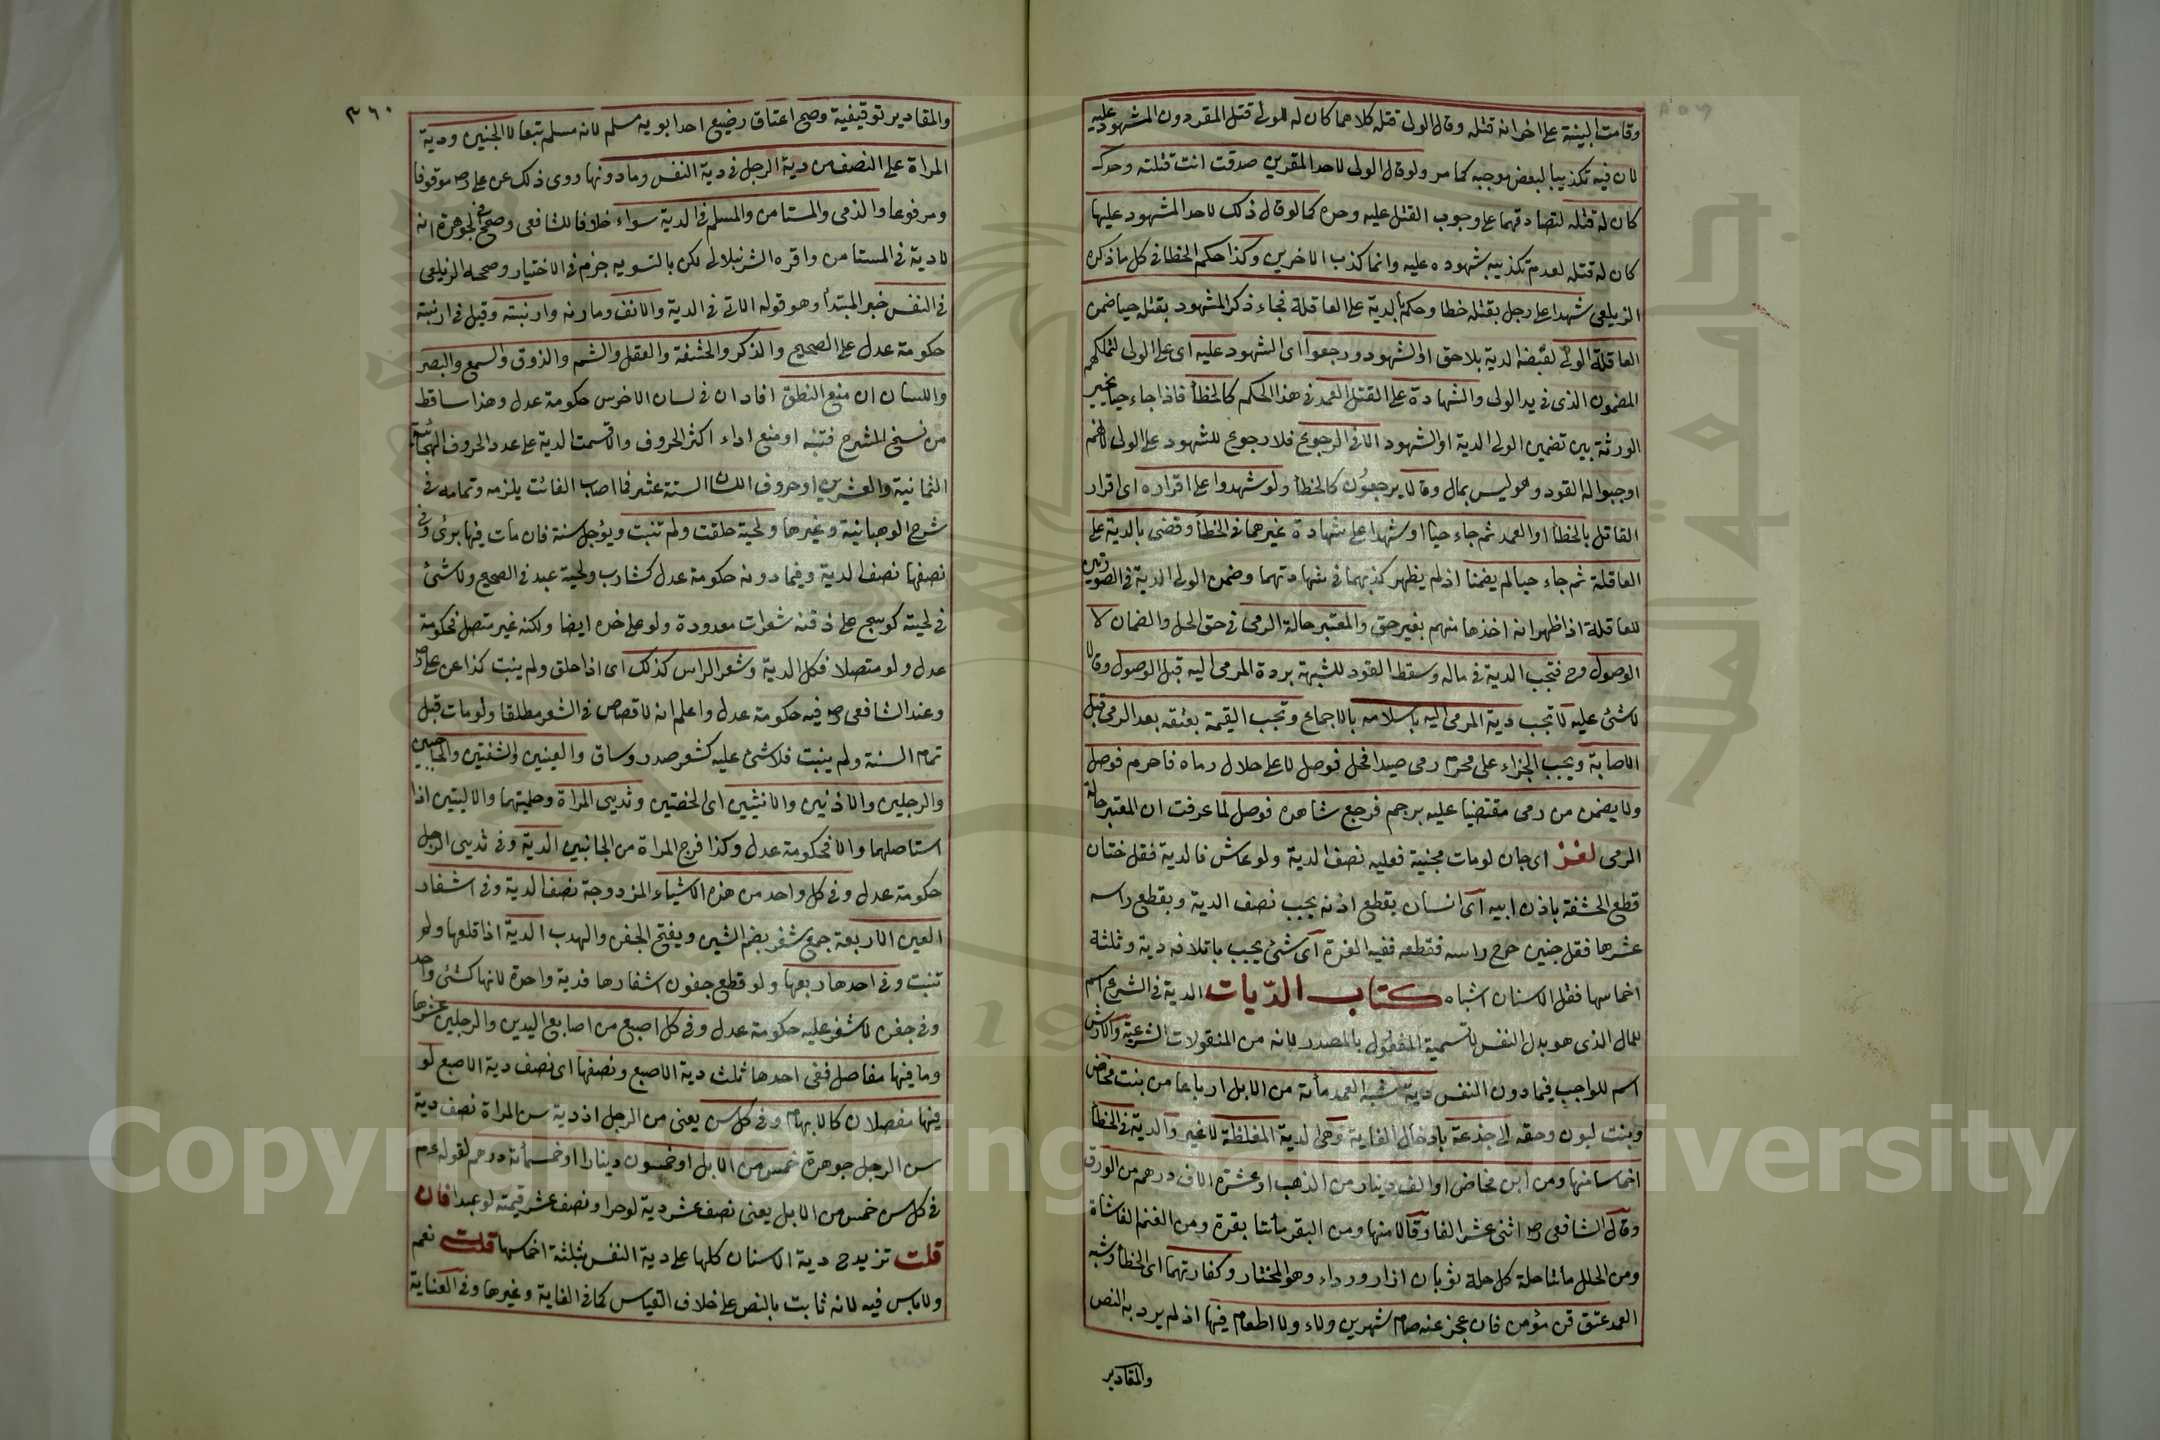 وقامت البينة على اخر انه قتله وقال الولى قتله كلاهما كان له للولى قتل المقر دون المشهود عليه
لان فيه تكذيبا لبعض موجبه كما مر ولو قال الولى لاحد المقرين صدقت انت قتلته وحدك
كان له قتله لتصادقهما على وجوب القتل عليه وحده كما لو قال ذلك لاحد المشهود عليها
كان له قتله لعدم تكذيبه شهوده عليه وانما كذب الاخرين وكذا حكم الخطا في كل ما ذكره
الزيلعى شهدا على رجل بقتله خطا وحكم بالدية على العاقلة فجاء ذكر المشهود بقتله حيا ضمن
العاقلة الولى لقبضه الدية بلا حق او الشهود ورجعوا اى الشهود عليه اى على الولى لتملكهم
المضمون الذى في يد الولى والشهادة على القتل العمد في هذا الحكم كالخطأ فاذا جاء حيا يخير
الورثة بين تضمين الولى الدية او الشهود الا في الرجوع فلا رجوع للشهود على الولى لانهم
اوجبوا له القود وهو ليس بمال وقالا يرجعون كالخطأ ولو شهدوا على اقراره اى اقرار
القاتل بالخطأ او العمد ثم جاء حيا او شهدا على شهادة غيرهما في الخطأ وقضى بالدية على
العاقلة ثم جاء حيا لم يضمنا اذ لم يظهر كذبهما في شهادتهما وضمن الولى الدية في الصورتين
للعاقلة اذا ظهر انه اخذها منهم بغير حق والمعتبر حالة الرمى في حق الحل والضمان لا
الوصول وح فتجب الدية في ماله وسقط القود للشبهة بردة المرمى اليه قبل الوصول وقالا
لا شئ عليه لا تجب دية المرمى اليه باسلامه بالاجماع وتجب القيمة بعتقه بعد الرمى قبل
الاصابة ويجب الجزاء على محرم رمى صيدا فحل فوصل لا على حلال رماه فاحرم فوصل
ولا يضمن من رمى مقتضيا عليه برجم فرجع شاهده فوصل لما عرفت ان المعتبر حالة
الرمى لغز اى جان لو مات مجنية فعليه نصف الدية ولو عاش فالدية فقل ختان
قطع الحشفة باذن ابيه اى انسان بقطع اذنه يجب نصف الدية وبقطع راسه
عشرها فقل جنين خرج راسه فقطعه ففيه الغرة اى شئ يجب باتلافه دية وثلثة
اخماسها فقل الاسنان اشباه كتاب الديات الدية في الشرع اسم
للمال الذى هو بدل النفس لا تسمية المفعول بالمصدر لانه من المنقولات الشرعية والارش
اسم للواجب فيما دون النفس دية شبه العمد مائة من الابل ارباعا من بنت مخاض
وبنت لبون وحقه الى جذعة بادخال الغاية وهى لدية المغلظة لا غير والدية في الخطأ
اخماسا منها ومن ابن مخاض او الف دينار من الذهب او عشرة الاف درهم من الورق
وقال الشافعى رح اثنى عشر الفا وقالا منها ومن البقر مائتا بقرة ومن الغنم الفا شاة
ومن الحلل مائتا حلة كل حلة ثوبان ازار ورداء وهو المختار وكفارتهما اى الخطأ وشبه
العمد عتق قن مؤمن فان عجز عنه صام شهرين ولاء ولا اطعام فيها اذ لم يرد به النص
والمقادير
٣٦٠
والمقادير توقيفية وصح اعتاق رضيع احد ابويه مسلم لانه مسلم تبعا لا الجنين ودية
المراة على النصف من دية الرجل في دية النفس وما دونها روى ذلك عن على رض موقوفا
ومرفوعا والذمى والمستامن والمسلم في الدية سواء خلافا للشافعى وصحح في الجوهرة انه
لا دية في المستامن واقره الشرنبلالى لكن بالتسويه جزم في الاختيار وصححه الزيلعى
في النفس خبر المبتدأ وهو قوله الاتى في الدية والانف ومارنه وارنبته وقيل في ارنبته
حكومة عدل على الصحيح والذكر والحشفة والعقل والشم والذوق والسمع والبصر
واللسان ان منع النطق افاد ان في لسان الاخرس حكومة عدل وهذا ساقط
من نسخ الشرح فتنبه او منع اداء اكثر الحروف والا قسمت الدية على عدد الحروف الهجائية
الثمانية والعشرين او حروف اللسان الستة عشر فما اصاب الفائت يلزمه وتمامه في
شرح الوهبانية وغيرها ولحية حلقت ولم تنبت ويؤجل سنة فان مات فيها برئ وفي
نصفها نصف الدية وفيما دونه حكومة عدل كشارب ولحية عبد في الصحيح ولا شئ
في لحية كوسج على ذقنه شعرات معدودة ولو على خده ايضا ولكنه غير متصل فحكومة
عدل ولو متصلا فكل الدية وشعر الراس كذلك اى اذا حلق ولم ينبت كذا عن على رض
وعند الشافعى رح فيه حكومة عدل واعلم انه لا قصاص في الشعر مطلقا ولو مات قبل
تمام السنة ولم ينبت فلا شئ عليه كشعر صدر وساق والعينين والشفتين والحاجبين
والرجلين والاذنين والانثيين اى الخصتين وثديى المراة وحلمتيهما والاليتين اذا
استاصلهما والا فحكومة عدل وكذا فرج المراة من الجانبين الدية وفي ثديى الرجل
حكومة عدل وفي كل واحد من هذه الاشياء المزدوجة نصف الدية وفي اشفار
العين الاربعة جمع شفر بضم الشين ويفتح الجفن والهدب الدية اذا قلعها ولو
تنبت وفي احدها ربعها ولو قطع جفون اشفارها فدية واحدة لانها كشئ واحد
وفي جفن لا شفر عليه حكومة عدل وفي كل اصبع من اصابع اليدين والرجلين عشرها
وما فيها مفاصل ففى احدها ثلث دية الاصبع ونصفها اى نصف دية الاصبع لو
فيها مفصلان كالابهام وفي كل سن يعنى من الرجل اذ دية سن المراة نصف دية
سن الرجل جوهرة خمس من الابل او خمسون دينارا او خمسمائة درهم لقوله عم
في كل سن خمس من الابل يعنى نصف عشر دية لو حرا ونصف عشر قيمته لو عبدا فان
قلت تزيد ح دية الاسنان كلها على دية النفس بثلثة اخماسها قلت نعم
ولا باس فيه لانه ثابت بالنص على خلاف القياس كما في الغاية وغيرها وفي العناية
Copyright © King Saud University